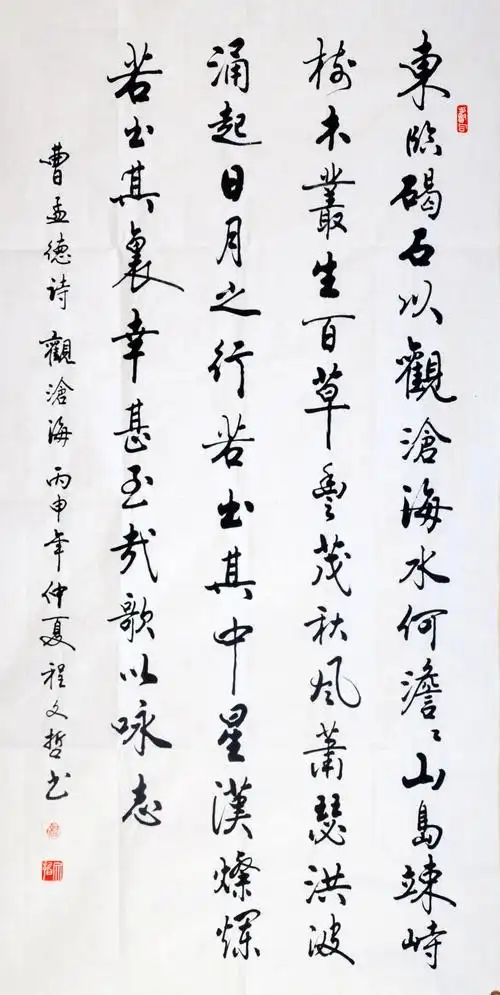 東臨碣石以觀滄海水何澹〻山島竦峙
樹木叢生百草豐茂秋風蕭瑟洪波
涌起日月之行若出其中星漢燦爛
若出其裏幸甚至哉歌以咏志
曹孟德詩 觀滄海 丙申年仲夏程文哲书